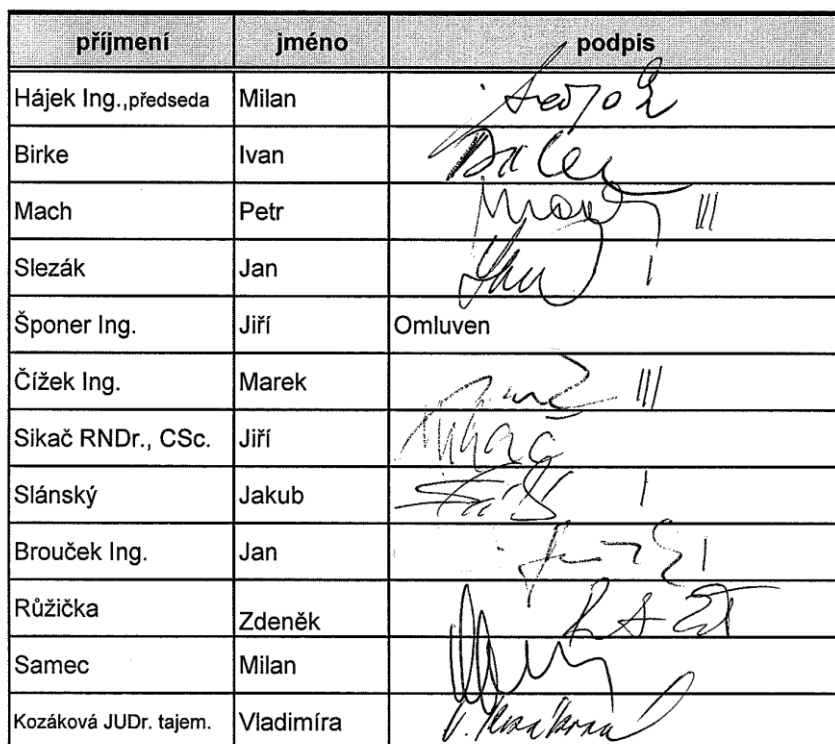 příjmení jméno podpis
Hájek Ing.,předseda Milan
Birke Ivan
Mach Petr III
Slezák Jan I
Šponer Ing. Jiří Omluven
Čížek Ing. Marek III
Sikač RNDr., CSc. Jiří
Slánský Jakub I
Brouček Ing. Jan I
Růžička Zdeněk
Samec Milan
Kozáková JUDr. tajem. Vladimíra V. Kozáková